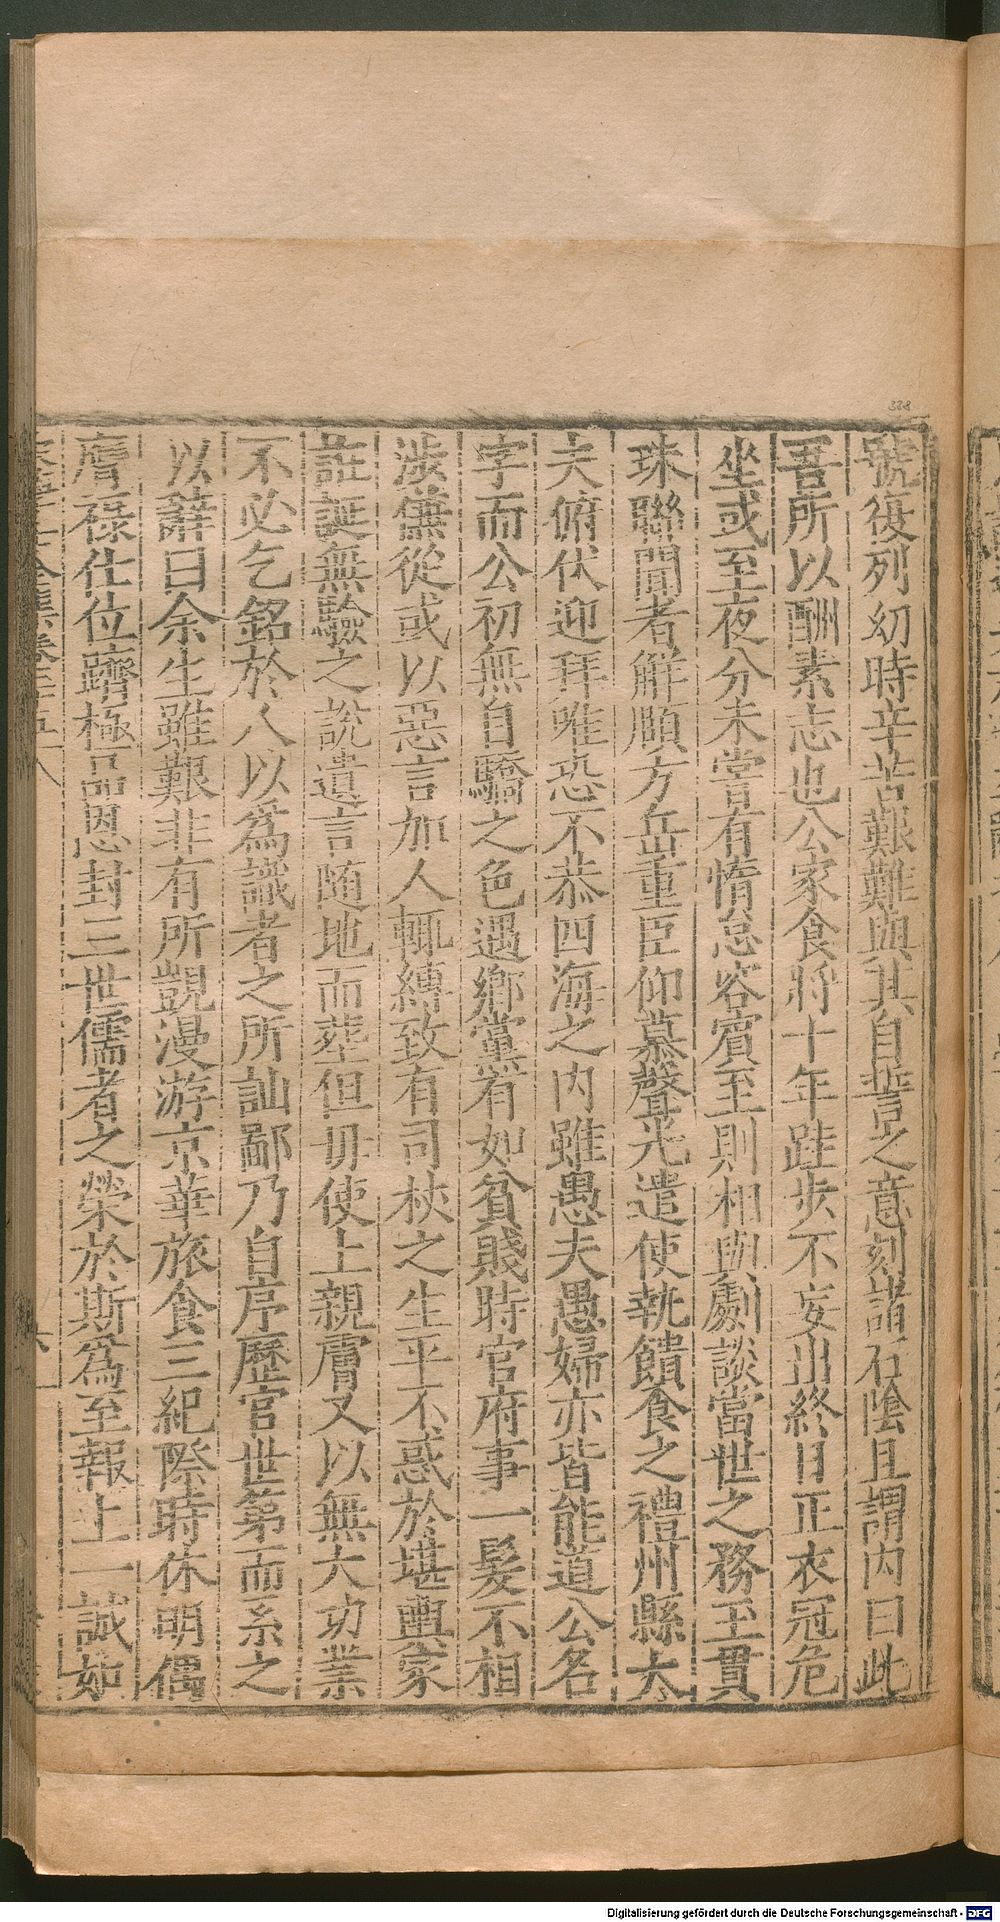 號復列幼時辛苦艱難與其自誓之意刻諸石陰且謂内曰此
吾所以酬素志也公家食將十年跬步不妄出終日正衣冠危
坐或至夜分未嘗有惰怠容賓至則相與劇談當世之務玉貫
珠聯聞者解頤方岳重臣仰慕聲光遣使執饋食之禮州縣大
夫俯伏迎拜唯恐不恭四海之内雖愚夫愚婦亦皆能道公名
字而公初無自驕之色遇鄉黨若如貧賤時官府事一髮不相
涉僕從或以惡言加人輒縛致有司杖之生平不惑於堪輿家
誑誕無驗之說遺言随地而葬但毋使土親膚又以無大功業
不必乞銘於人以爲識者之所訕鄙乃自序歷官世第而系之
以辭曰余生雖艱非有所覬漫游京華旅食三紀際時休明偶
膺祿仕位躋極品恩封三世儒者之榮於斯爲至報上一誠如
338
Digitalisierung gefördert durch die Deutsche Forschungsgemeinschaft - DFG